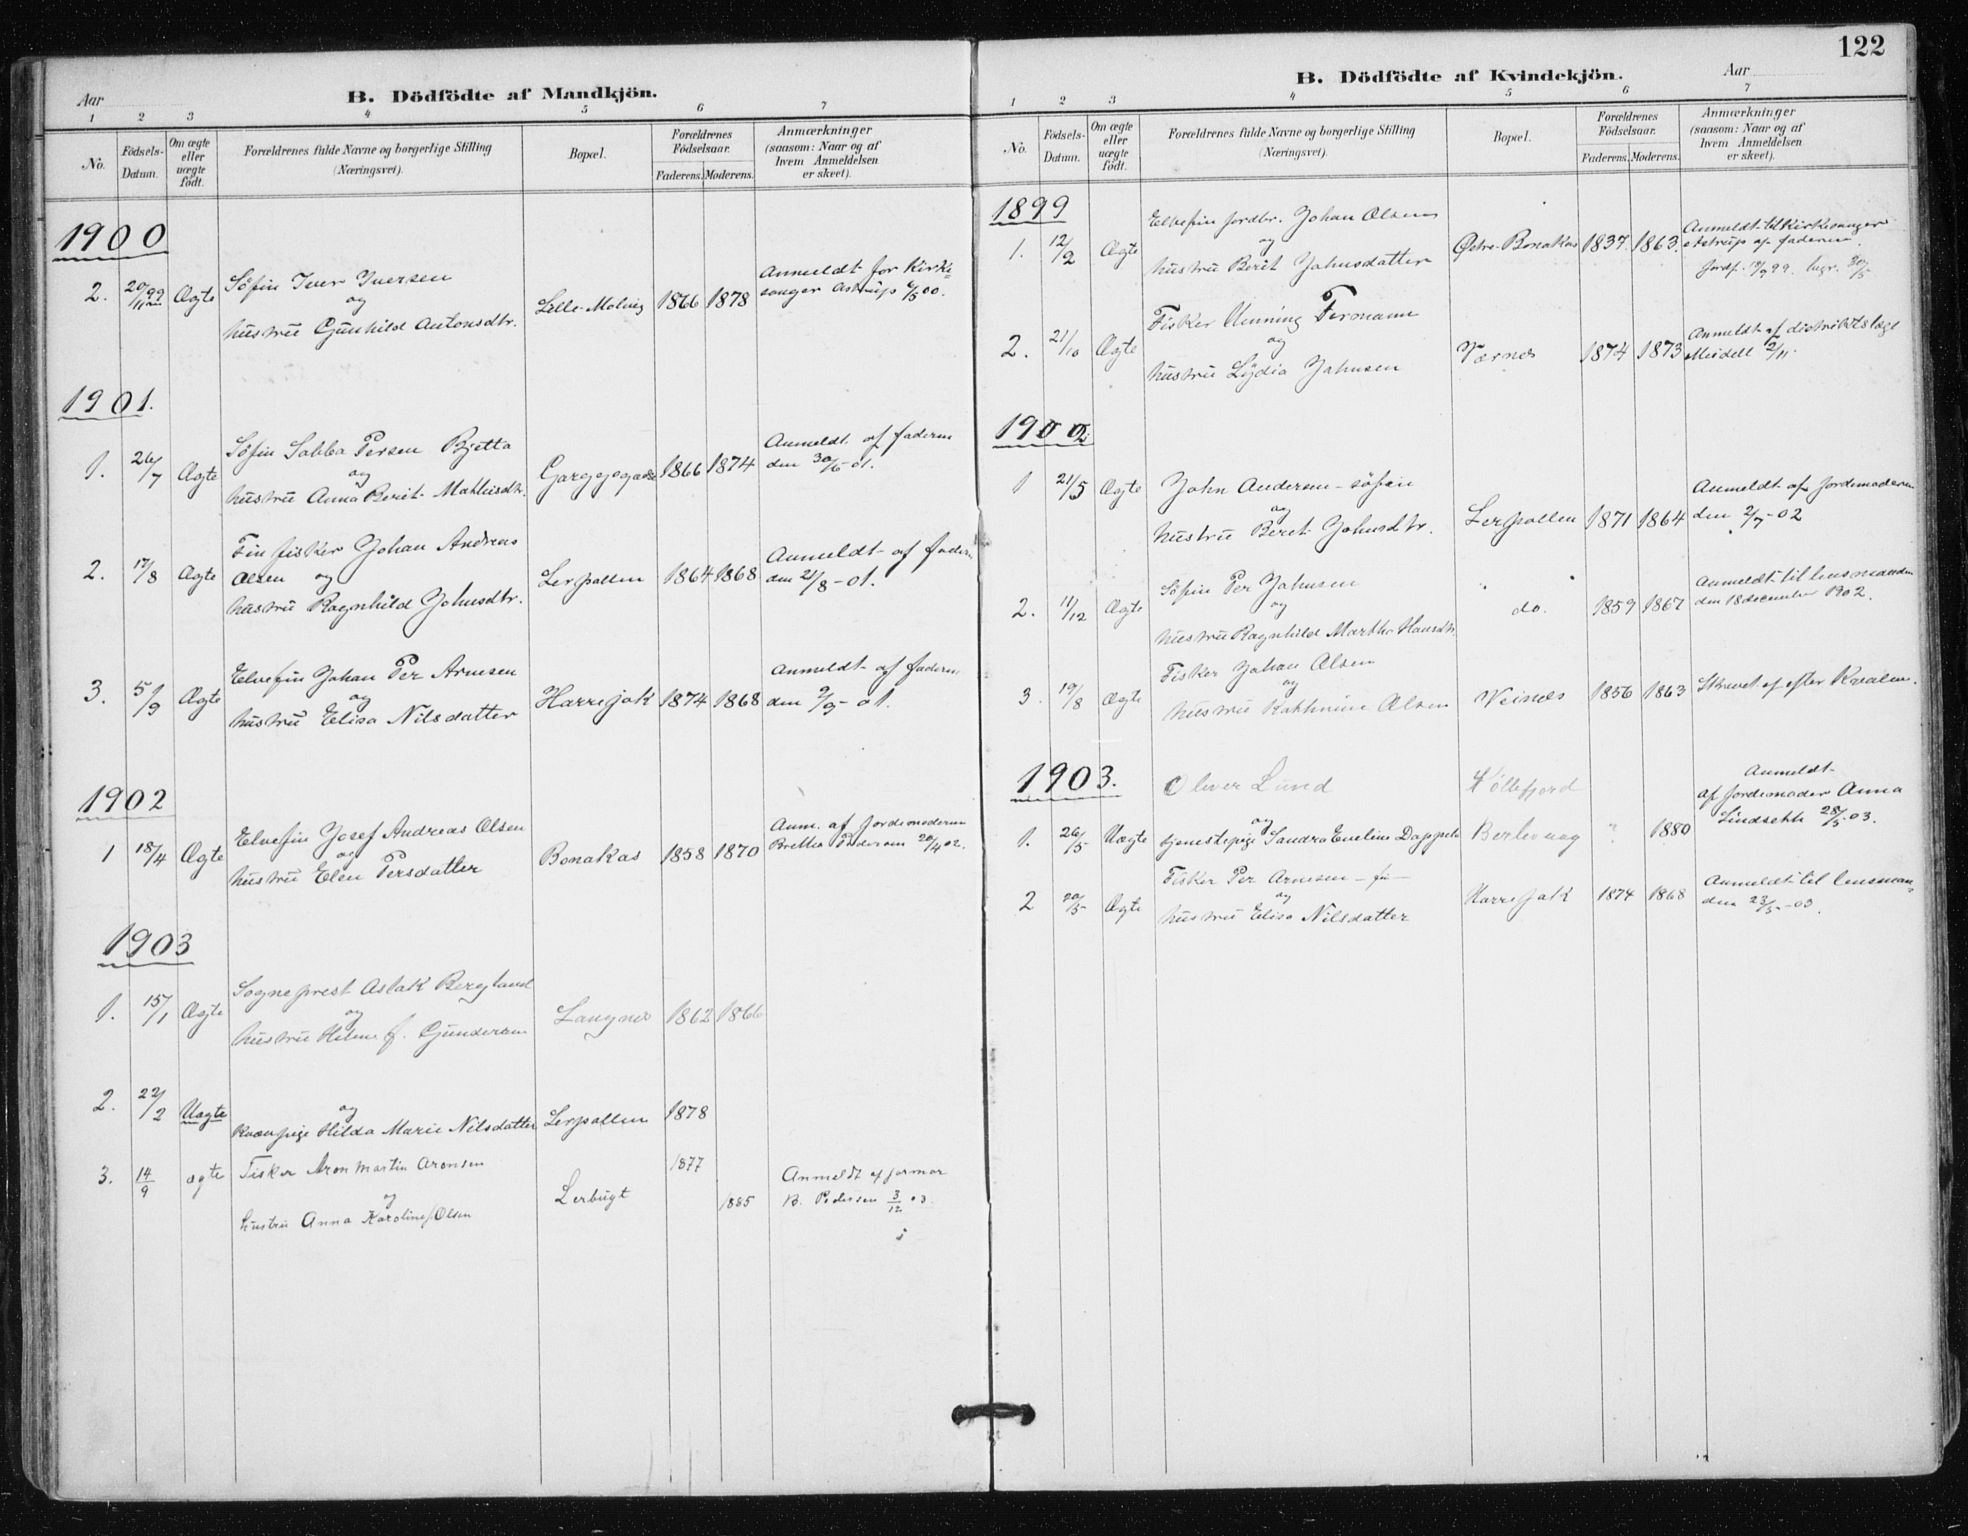 Aar
B. Dödfödte af Mandkjön.
1 2 3 4 5 6 7
No.
Födsels-
Datum.
Om ægte
eller
uægte
født.
Forældrenes fulde Navne og borgerlige Stilling
(Næringsvei).
Bopæl.
Forældrenes
Födselsaar.
Faderens. Moderens.
Anmærkninger
(saasom: Naar og af
hvem Anmeldelsen
er skeet).
1900
2. 20/11 99 Ægte
Söfin Iver Iversen
og
hustru Gunhild Antonsdtr.
Lille-Molvig 1866 1878
Anmeldt for Kirke-
sanger Astrup 6/5 00.
1901.
1. 26/7 Ægte
Söfin Sabba Persen Bjetta
og
hustru Anna Berit Mathisdtr.
1866 1874
Anmeldt af faderen
den 30/6-01.
2. 17/8 Ægte
Finfisker Johan Andreas
Olsen og
hustru Ragnhild Johnsdtr.
Lerpollen 1864 1868
Anmeldt af faderen
den 21/8-01.
3. 5/9 Ægte
Elvefin Johan Per Arnesen
og
hustru Elisa Nilsdatter
Harrejok 1874 1868
Anmeldt af faderen
den 9/9-01.
1902
1 18/4 Ægte
Elvefin Josef Andreas Olsen
og
hustru Elen Persdatter
Bonakas 1858 1870
Anm. af jordemoderen
Brettha Pedersen 20/4 02.
1903
1. 15/1 Ægte
Sogneprest Aslak Bergland
og
hustru Helene f. Gundersen
Langnes 1862 1866
2. 22/2 Uægte
og
Kvænpige Hilda Marie Nilsdatter
Lerpollen 1878
3. 14/9 ægte
Fisker Aron Martin Aronsen
og
hustru Anna Karoline f. Olsen
Lerbugt 1877 1885
Anmeldt af jormor
B. Pedersen 3/12 03.
122
B. Dödfödte af Kvindekjön.
Aar
1 2 3 4 5 6 7
No.
Födsels-
Datum.
Om ægte
eller
uægte
født.
Forældrenes fulde Navne og borgerlige Stilling
(Næringsvei).
Bopæl.
Forældrenes
Födselsaar.
Faderens. Moderens.
Anmærkninger
(saasom: Naar og af
hvem Anmeldelsen
er skeet).
1899
1. 12/2 Ægte
Elvefin jordbr. Johan Olsen
og
hustru Berit Johnsdatter
Østre-Bonakas 1837. 1863.
Anmeldt til Kirkesanger
Astrup af faderen.
2. 21/10 Ægte
Fisker Henning Fermann
og
hustru Lydia Johnsen
Værnes 1874 1873
Anmeldt af distriktslæge
2/11.
1902
1 21/5 Ægte
John Andersen - söfin
og
hustru Beret Johnsdtr.
Lerpollen 1871 1864
Anmeldt af Jordemoderen
den 2/7-02
2. 11/12 Ægte
Söfin Per Johnsen
og
hustru Ragnhild Martha Hansdtr.
do. 1859 1867
Anmeldt til lensmanden
den 18 december 1902.
3. 19/8 Ægte
Fisker Johan Olsen
og
hustru Kathrine Olsen
Veines 1856 1863
Skrevet af efter Kvalen.
1903.
1. 26/5 Uægte
Oliver Lund
og
tjenestepige Sandra Eveline Dappela
Köllefjord
Berlevaag " 1880
Anmeldt
af Jordemoder Anna
Lindseth 28/5 03.
2 20/5 Ægte
Fisker Per Arnesen - fin -
og
hustru Elisa Nilsdatter
Harrejok 1874 1868
Anmeldt til lensman-
den 23/5-03.